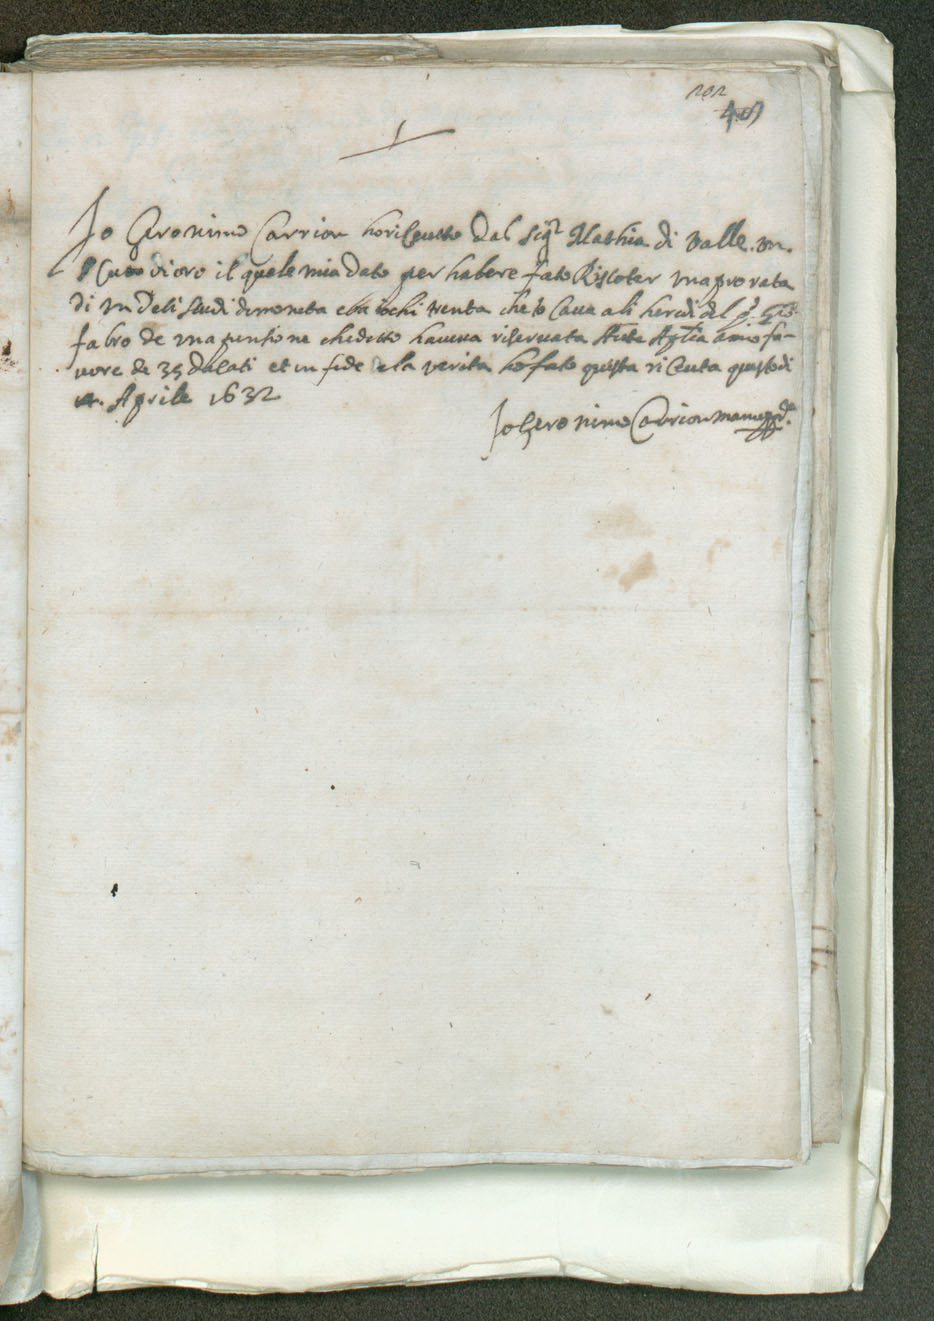 202
Io Geronimo Carrion ho riceutto dal Sigr Mathia di Valle un
scuto di oro il quale mia dato per habere fato Riscoter una prorata
di undeli scudi di moneta e baiochi trenta che lo Caua a li heredi del
fabro de una pensione che detto haueua riseruata a mio fa-
uore de 35 ducati et in fede dela verita ho fato questa riceuta questo di
Aprile 1632
Io Geronimo Carrion mano ppa